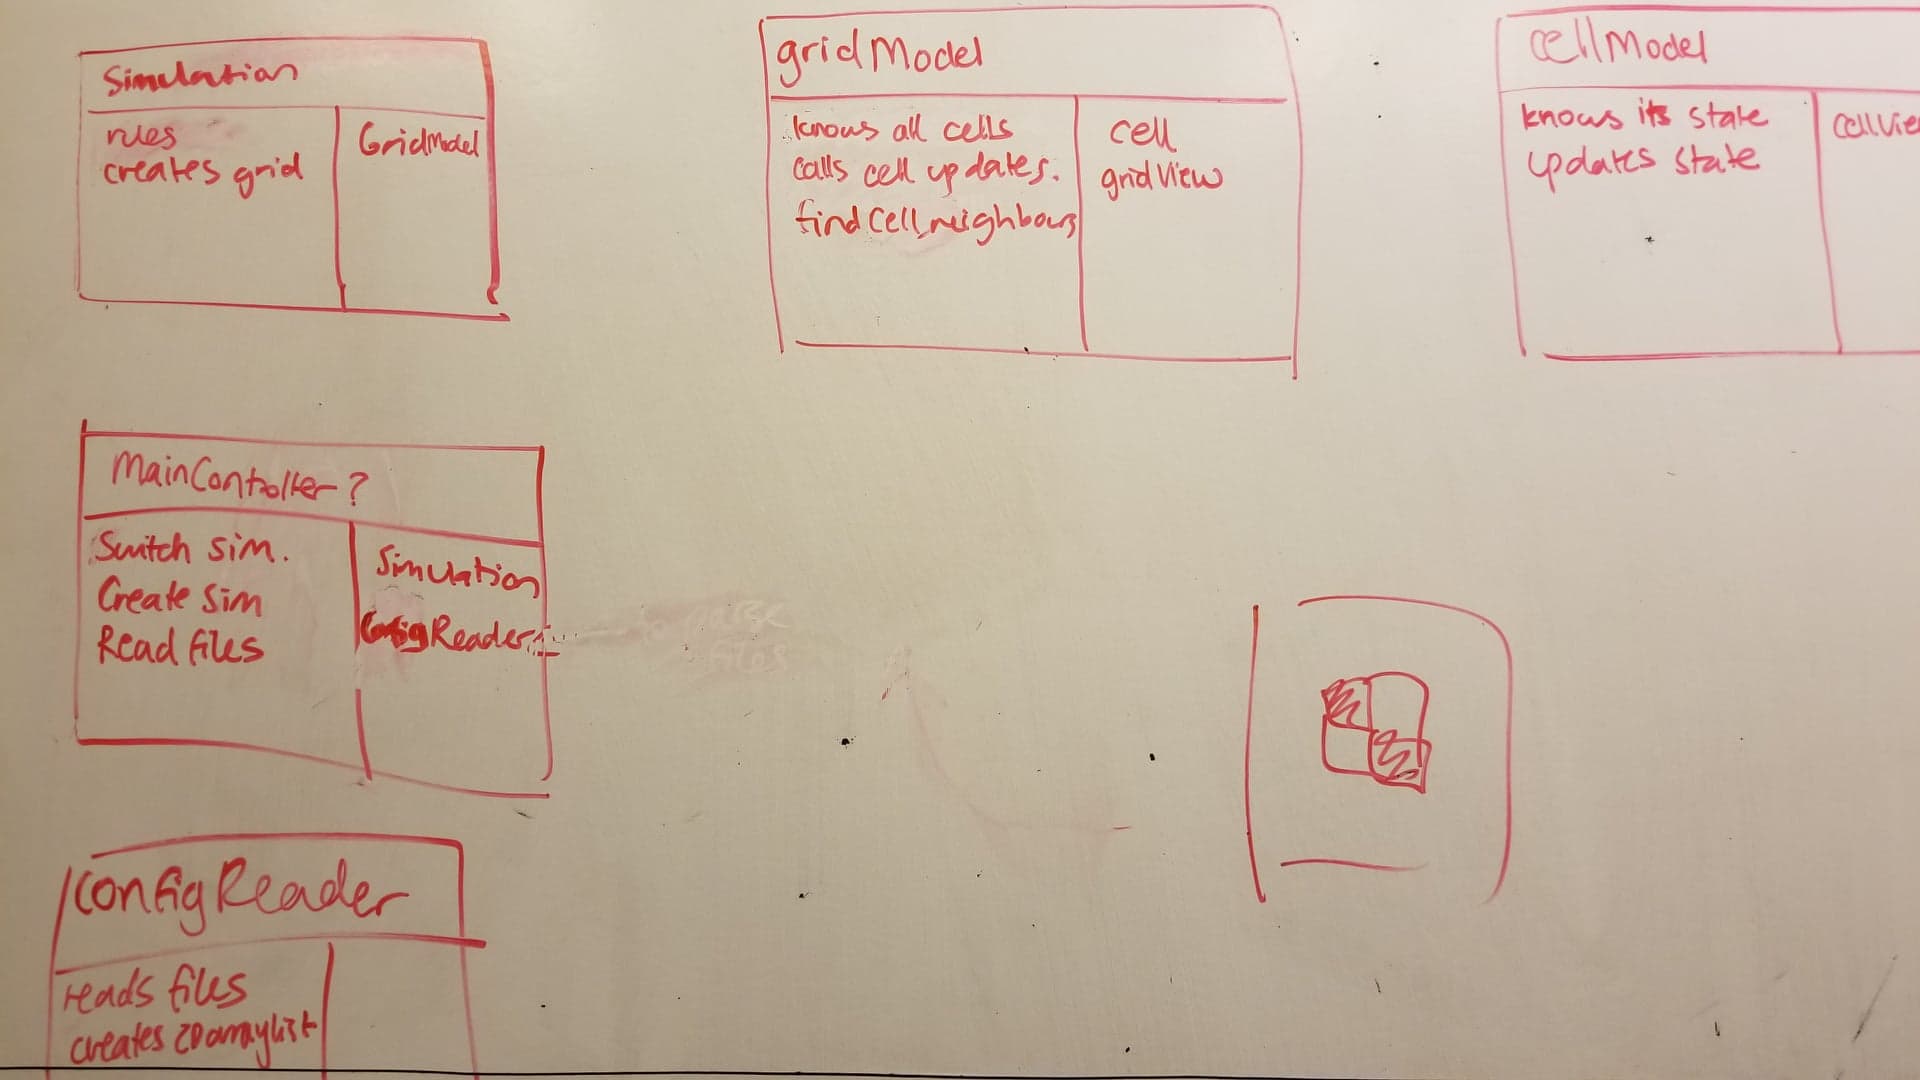 Simulation
rules
creates grid
GridModel
gridModel
knows all cells
calls cell updates.
find Cell neighbours
cell
gridView
cellModel
knows its state
updates state
CellVie
MainController?
Switch sim.
Create sim
Read files
Simulation
ConfigReader
to parse
files
ConfigReader
reads files
creates 2D arraylist